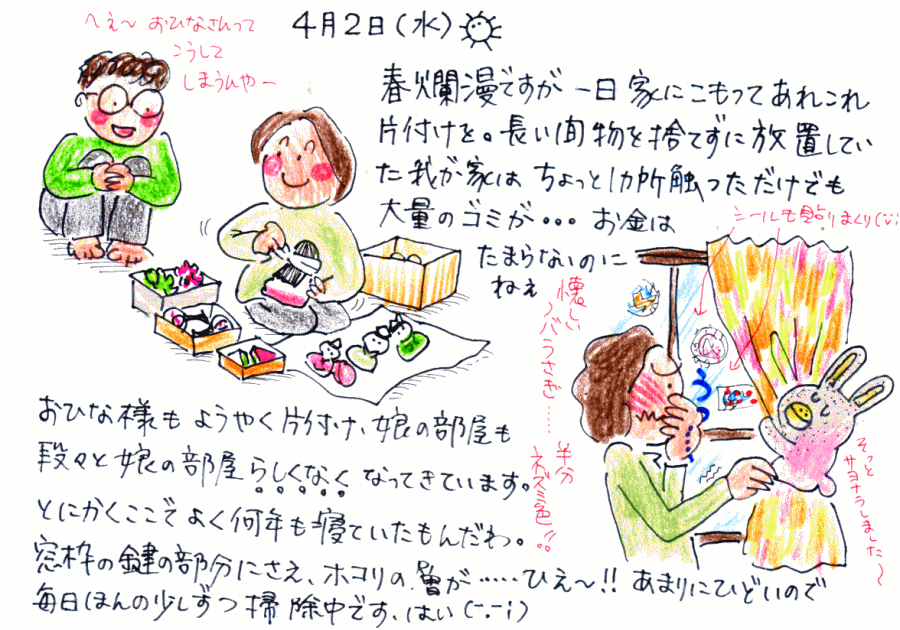 4月2日(水)
へえ～ おひなさんって
こうして
しまうんやー
春爛漫ですが 一日家にこもってあれこれ
片付けを。長い間物を捨てずに放置してい
た我が家は ちょっと1カ所触っただけでも
大量のゴミが・・・ お金は
たまらないのに
ねぇ
シールも貼りまくり(;;)
懐しい
バニうさぎ……
半分
ネズミ色!!
そっと
サヨナラしました〜
おひな様も ようやく片付け、娘の部屋も
段々と娘の部屋らしくなく なってきています。
とにかくここでよく何年も寝ていたもんだわ。
窓枠の鍵の部分にさえ、ホコリの層が……ひえ～!! あまりにひどいので
毎日ほんの少しずつ掃除中です、はい (-.-;)